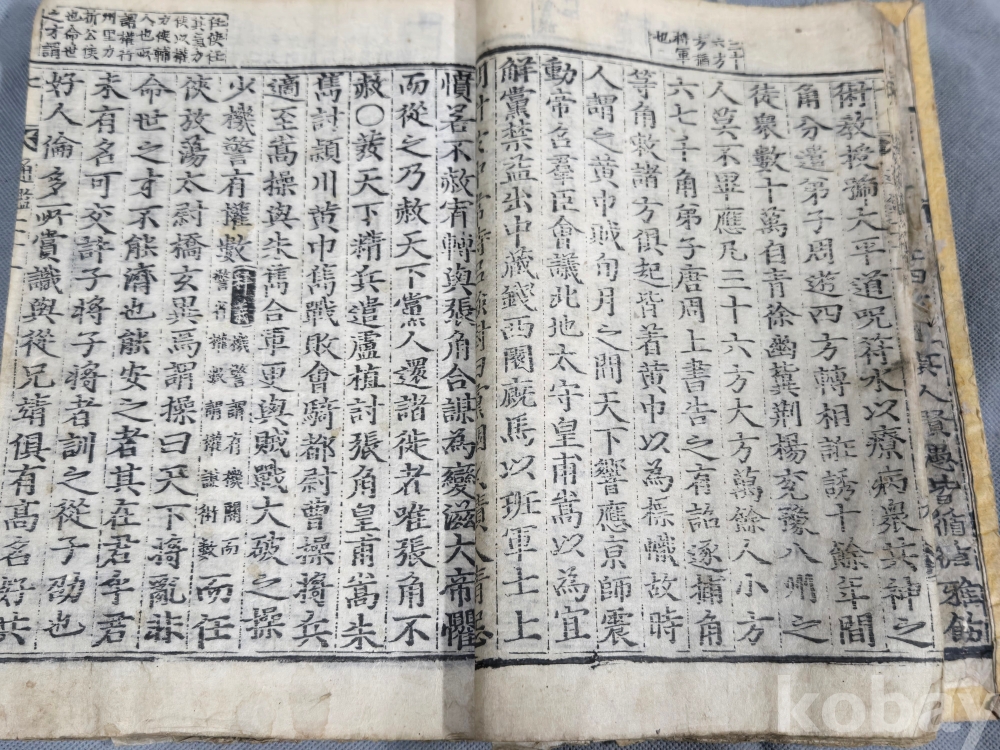 二十
六方
方猶
將軍
也
術教授瀹大平道呪符水以療病衆共神之
角分遣弟子周遊四方轉相誑誘十餘年間
徒衆數十萬自青徐幽冀荆楊兖豫八州之
人莫不畢應凡三十六方大方萬餘人小方
六七千角弟子唐周上書告之有詔逐捕角
等角敕諸方俱起皆着黄巾以為標幟故時
人謂之黄巾賊旬月之間天下響應京師震
動帝召羣臣會議北地太守皇甫嵩以為宜
解黨禁益出中藏錢西園廐馬以班軍士上
任使任
其氣力
使以權
方使輔
人也所
謂權行
州里力
折公侯
也命世
之才謂
憤若不赦宥轉與張角合謀為變滋大帝懼
而從之乃赦天下黨人還諸徙者唯張角不
赦○發天下精兵遣盧植討張角皇甫嵩朱
雋討潁川黄巾雋戰敗會騎都尉曹操將兵
適至嵩操與朱雋合軍更與賊戰大破之操
少機警有權數 機警謂有機關而
警省權數謂權謀術數 而任
俠放蕩太尉橋玄異焉謂操曰天下將亂非
命世之才不能濟也能安之者其在君乎君
未有名可交許子將子將者訓之從子劭也
好人倫多所賞識與從兄靖俱有高名好共
通鑑
其人賢愚皆循德雅飭
kobay